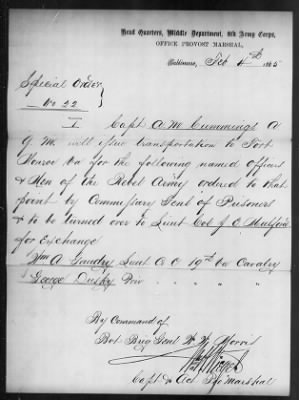 Head Quarters, Middle Department, 8th Army Corps,
OFFICE PROVOST MARSHAL,
Baltimore, Feb 4th 1865
Special Order
No 22
I Capt A. M. Cummings A
Q M will issue transportation to Fort
Monroe Va for the following named Officers
& Men of the Rebel Army ordered to that
point by Commissary Genl of Prisoners
& to be turned over to Lieut Col J E Mulford
for Exchange
Wm A Gaudry Lieut Co 19th Va Cavalry
George Dusky Priv " " " "
By Command of
Bvt Brig Genl W W Morris
Capt & Act Pro Marshal